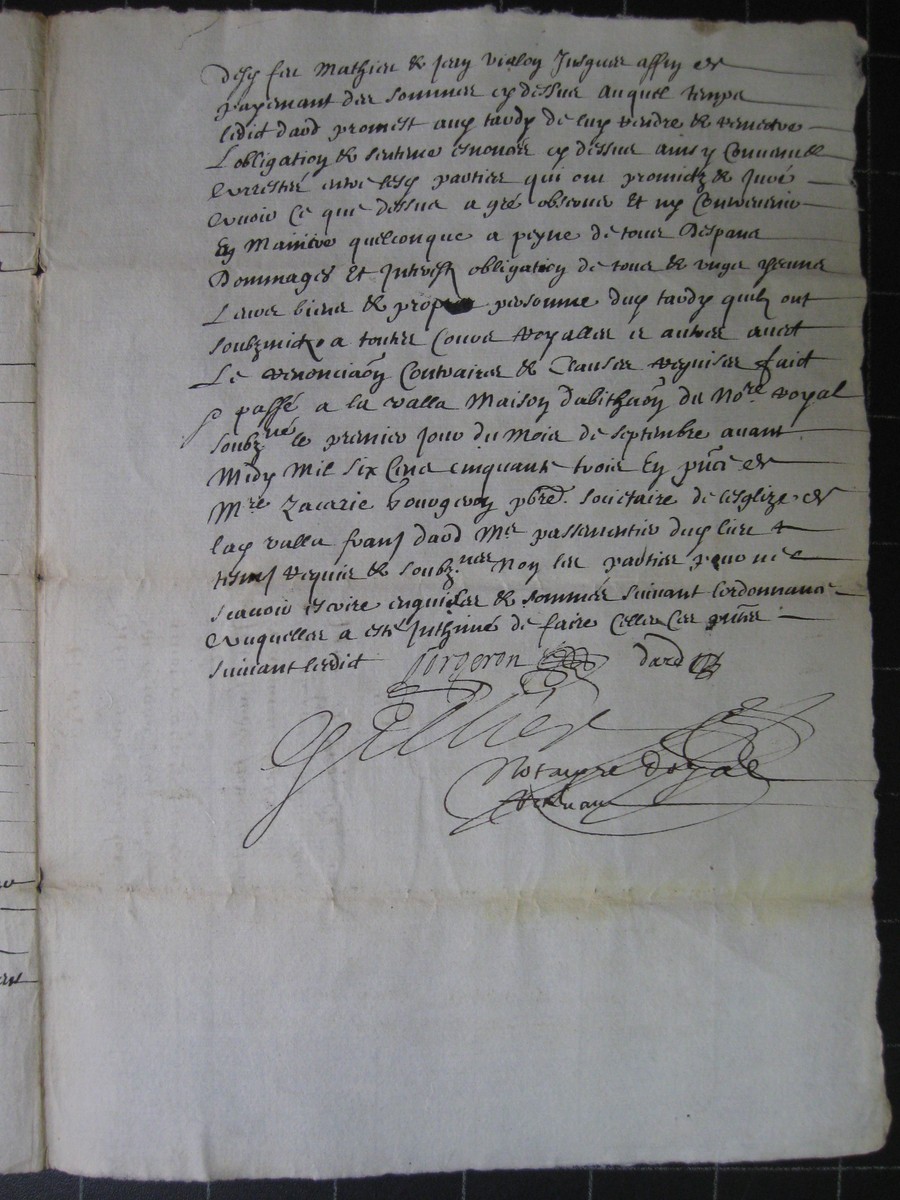 desd feu Mathieu & jean vialon Jusques affin de
payemant des sommes cy dessus auquel temps
ledict dard promect aud tardy de luy rendre & remectre
L'obligation & sentence esnoncés cy dessus ainsy Convenu &
arresté entre lesd parties qui ont promictz & Juré
avoir Ce que dessus a gré observer Et ny Contrevenir
En Maniere quelconque a peyne de tous Despans
Dommages Et Interestz obligation de tous & ungs chescuns
Leurs biens & propre personne dud tardy quilz ont
soubzmictz a toutes Cours royalles et autres avect
Les renonciaons Contraires & Clauses requises faict
& passé a la valla Maison d'abithaon du No.re royal
soubz.né le premier jour du Mois de septembre avant
Midy Mil six Cens cinquante trois En pnce de
M.re Zacarie bourgeron pbre societaire de lesglize de
lad valla frans dard M.e passementier dud lieu &
tesms requis & soubz.nes Non les parties pour ne
scavoir escrire enquises & sommés suivant l'ordonnance
auquelles a esté Inthimé de faire Celler Ces pntes
suivant ledict borgeron dard
Gillier
Notayre Royal